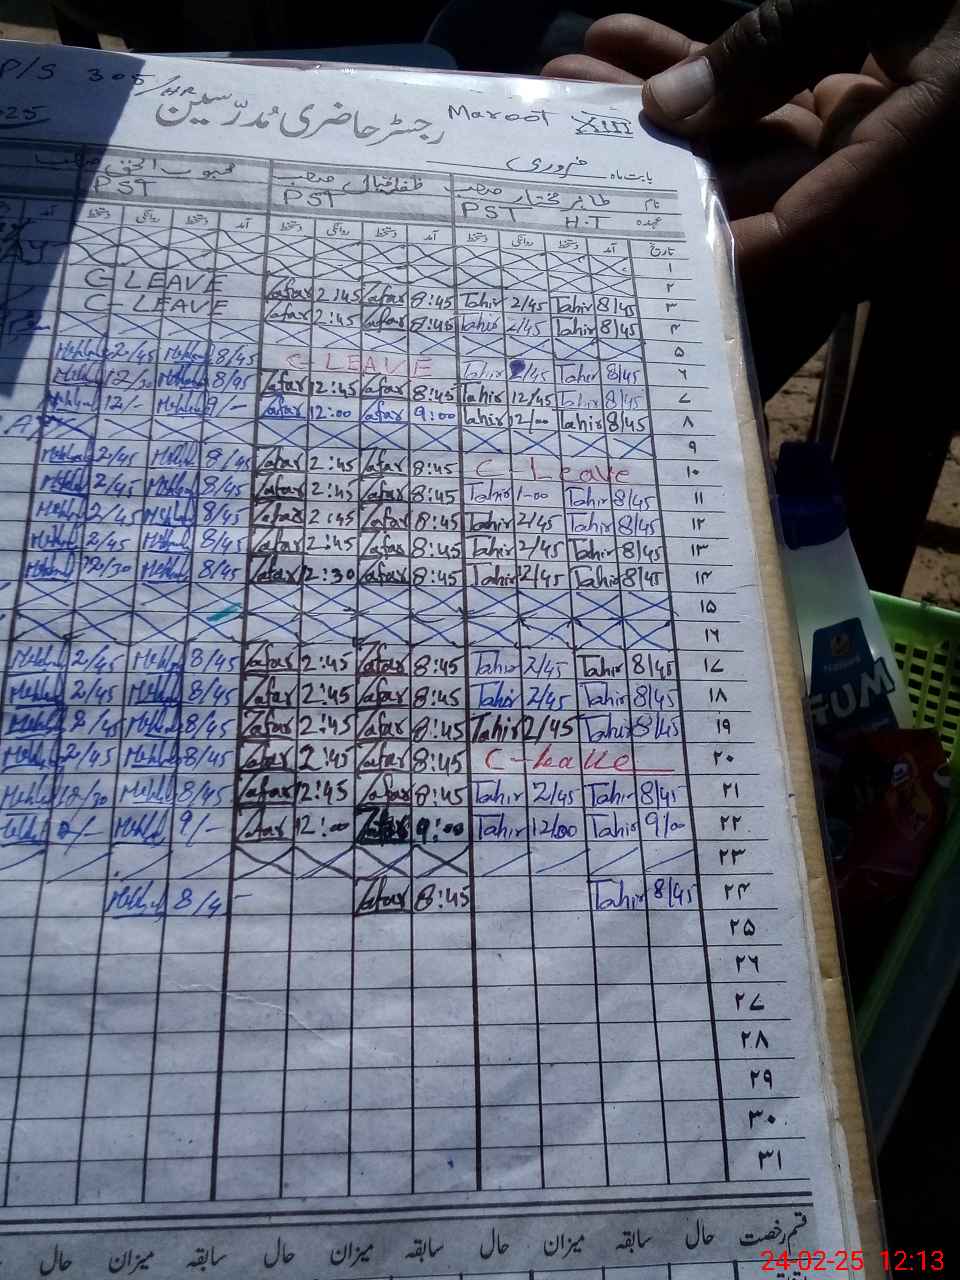 P/S 305/HR
رجسٹر حاضری مُدرّسین Maroot XIII
بابت ماہ فروری
نام طاہر مختار صاحب ظفر اقبال صاحب محبوب الحق صاحب
عہدہ PST H.T PST PST
تاریخ آمد دستخط روانگی دستخط آمد دستخط روانگی دستخط آمد دستخط روانگی دستخط
۱
۲
۳ 8/45 Tahir 2/45 Tahir 8:45 Zafar 2:45 Zafar C-LEAVE
۴ 8/45 Tahir 2/45 Tahir 8:45 Zafar 2:45 Zafar C-LEAVE
۵
۶ 8/45 Tahir 2/45 Tahir C-LEAVE 8/45 2/45
۷ 8/45 Tahir 12/45 Tahir 8:45 Zafar 12:45 Zafar 8/45 12/30
۸ 8/45 Tahir 12/00 Tahir 9:00 Zafar 12:00 Zafar 9/- 12/-
۹
۱۰ C-Leave 8:45 Zafar 2:45 Zafar 8/45 2/45
۱۱ 8/45 Tahir 1-00 Tahir 8:45 Zafar 2:45 Zafar 8/45 2/45
۱۲ 8/45 Tahir 2/45 Tahir 8:45 Zafar 2:45 Zafar 8/45 2/45
۱۳ 8/45 Tahir 2/45 Tahir 8:45 Zafar 2:45 Zafar 8/45 2/45
۱۴ 8/45 Tahir 12/45 Tahir 8:45 Zafar 12:30 Zafar 8/45 12/30
۱۵
۱۶
۱۷ 8/45 Tahir 2/45 Tahir 8:45 Zafar 2:45 Zafar 8/45 2/45
۱۸ 8/45 Tahir 2/45 Tahir 8:45 Zafar 2:45 Zafar 8/45 2/45
۱۹ 8/45 Tahir 2/45 Tahir 8:45 Zafar 2:45 Zafar 8/45 2/45
۲۰ C-Leave 8:45 Zafar 2:45 Zafar 8/45 2/45
۲۱ 8/45 Tahir 2/45 Tahir 8:45 Zafar 12:45 Zafar 8/45 12/30
۲۲ 9/00 Tahir 12/00 Tahir 9:00 Zafar 12:00 Zafar 9/-
۲۳
۲۴ 8/45 Tahir 8:45 Zafar 8/4
۲۵
۲۶
۲۷
۲۸
۲۹
۳۰
۳۱
قسم رخصت حال سابقہ میزان حال سابقہ میزان حال سابقہ میزان حال
GUM
24-02-25 12:13